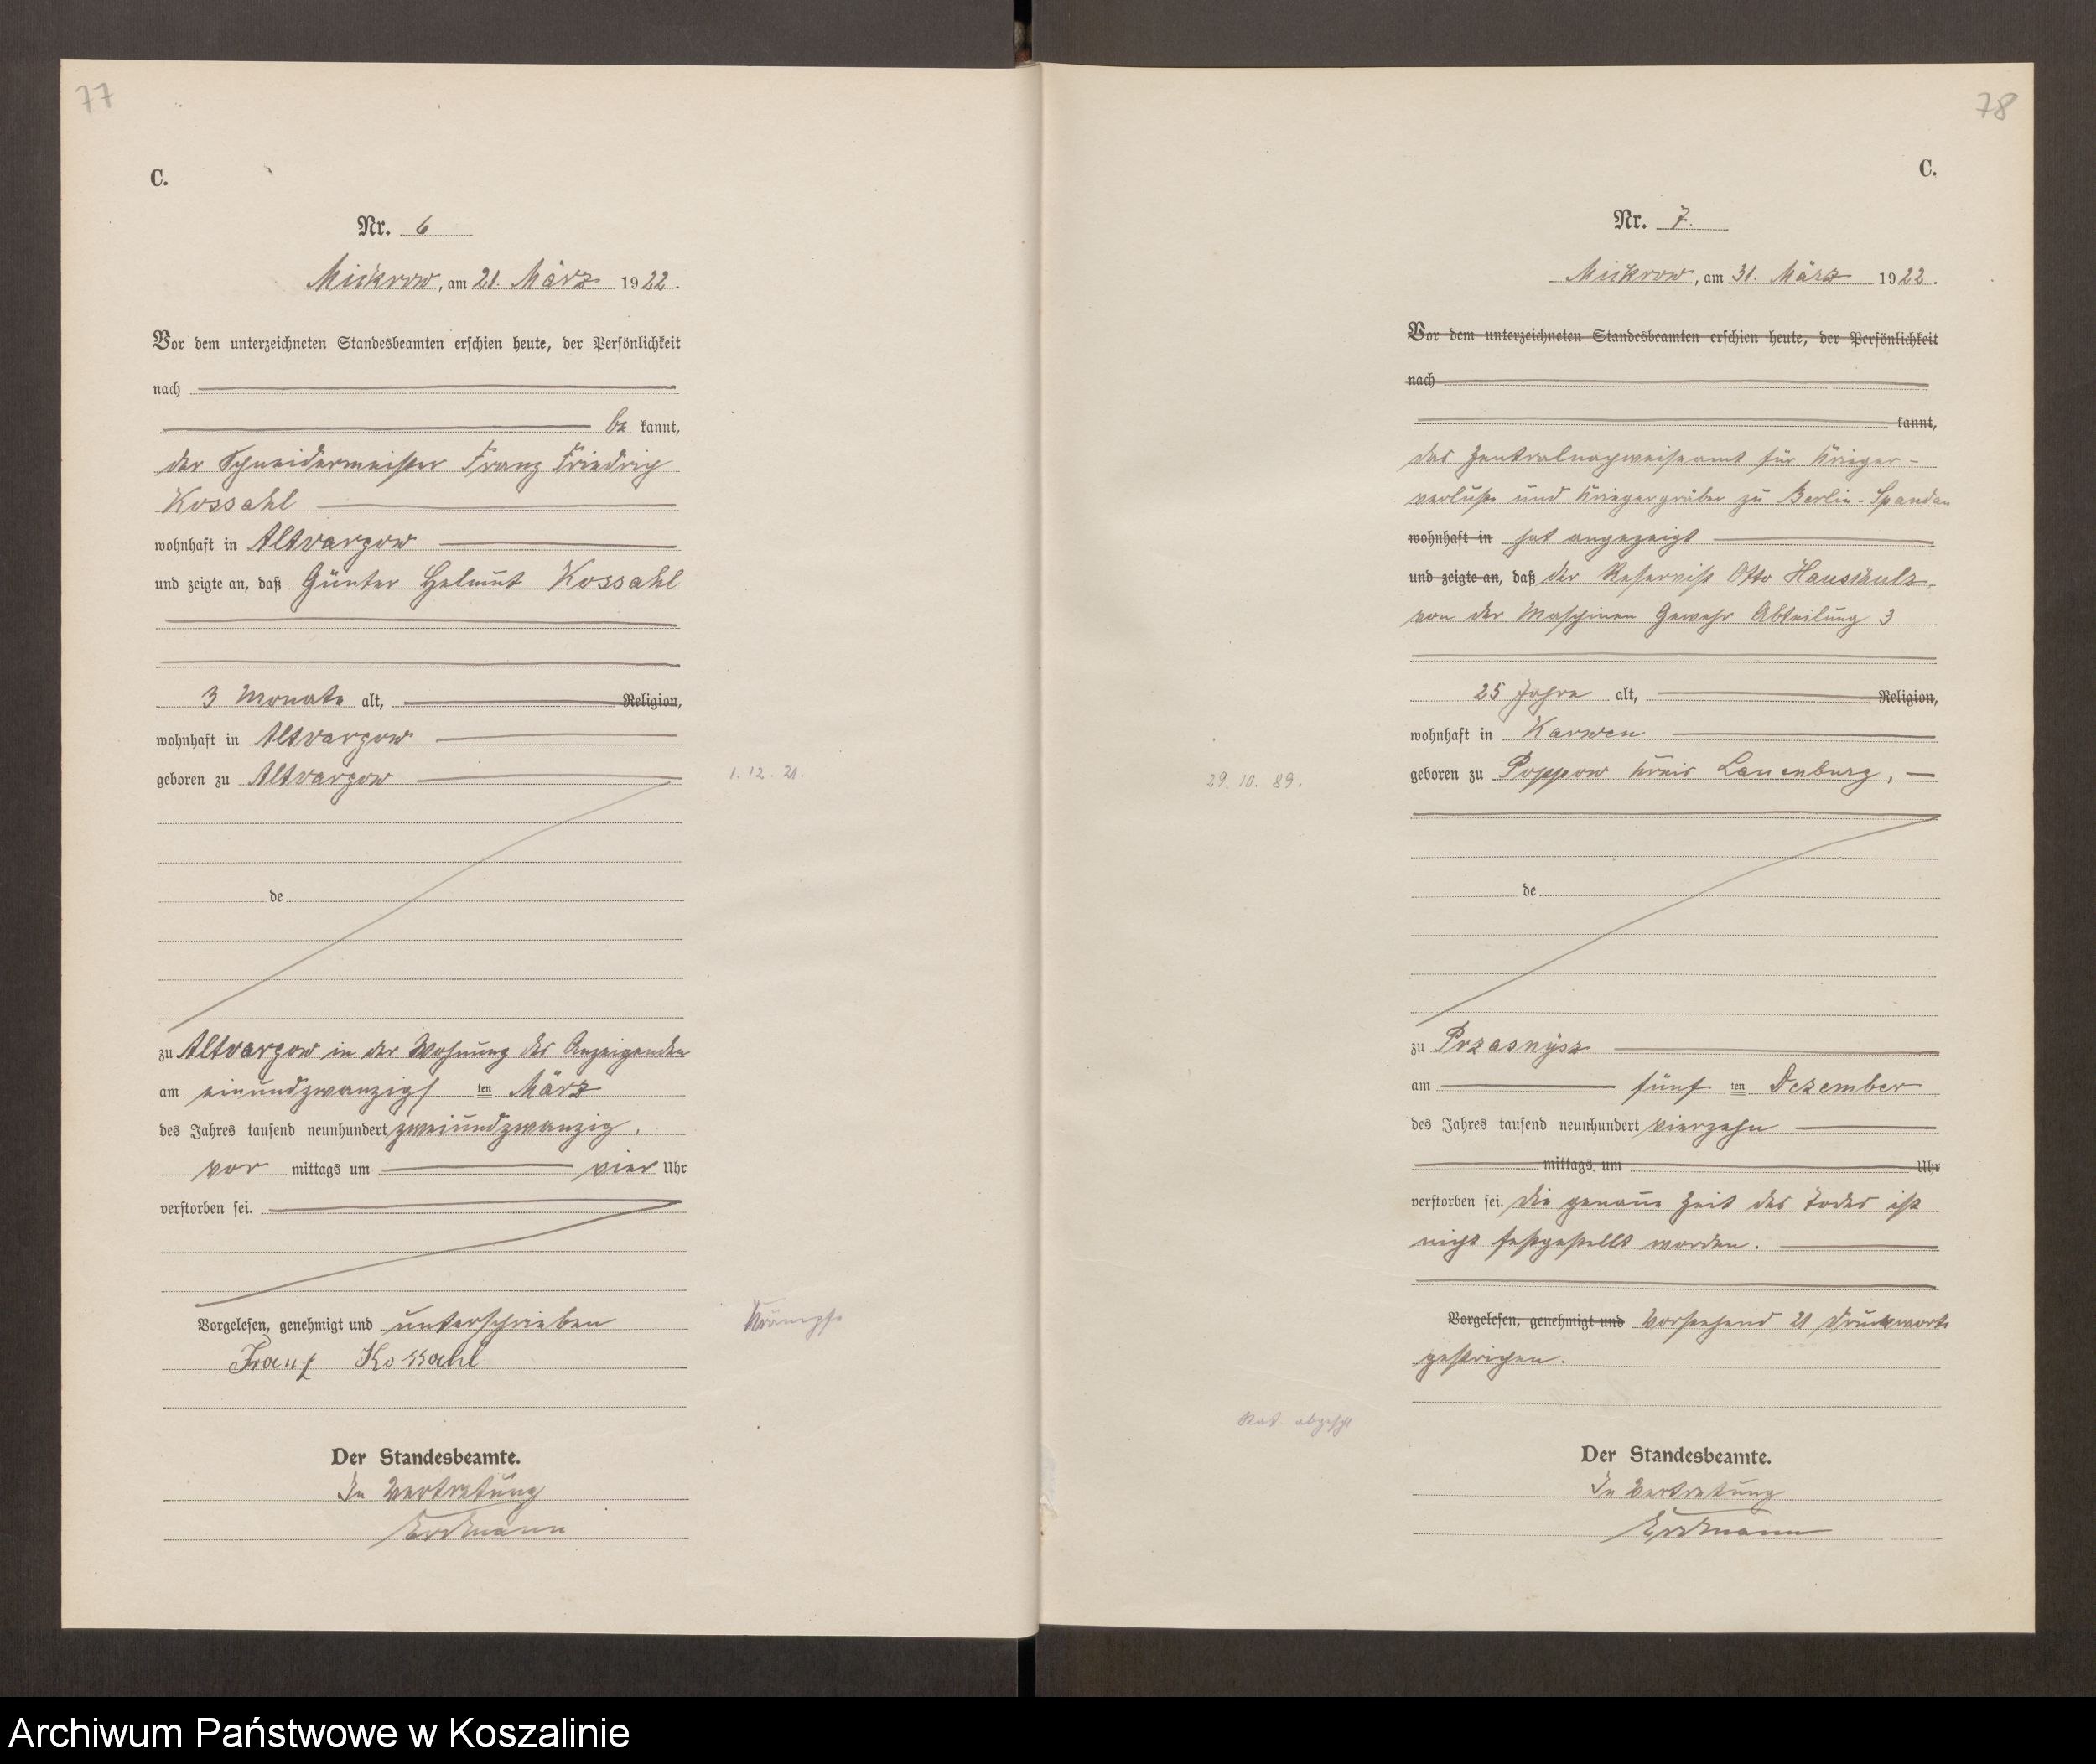 77
C.
Nr. 6
Mickrow, am 21. März 1922.
Vor dem unterzeichneten Standesbeamten erschien heute, der Persönlichkeit
nach
be kannt,
der Schneidermeister Franz Friedrich
Kossahl
wohnhaft in Altvargow
und zeigte an, daß Günter Helmut Kossahl
3 Monate alt, Religion,
wohnhaft in Altvargow
geboren zu Altvargow
1. 12. 21.
de
zu Altvargow in der Wohnung des Anzeigenden
am einundzwanzigs ten März
des Jahres tausend neunhundert zweiundzwanzig,
vor mittags um vier Uhr
verstorben sei.
Vorgelesen, genehmigt und unterschrieben
Krämpfe
Franz Kossahl
Der Standesbeamte.
In Vertretung
Erdmann
78
C.
Nr. 7.
Mickrow, am 31. März 1922.
Vor dem unterzeichneten Standesbeamten erschien heute, der Persönlichkeit
nach
kannt,
das Zentralnachweiseamt für Krieger-
verluste und Kriegergräber zu Berlin-Spandau
wohnhaft in hat angezeigt
und zeigte an, daß der Reservist Otto
von der Maschinen Gewehr Abteilung 3
25 Jahre alt, Religion,
wohnhaft in Karwen
geboren zu Poppow Kreis Lauenburg,
29. 10. 89.
de
zu Przasnysz
am fünf ten Dezember
des Jahres tausend neunhundert vierzehn
mittags um Uhr
verstorben sei. Die genaue Zeit des Todes ist
nicht festgestellt worden.
Vorgelesen, genehmigt und Vorstehend 21 Druckworte
gestrichen.
Der Standesbeamte.
In Vertretung
Erdmann
Archiwum Państwowe w Koszalinie